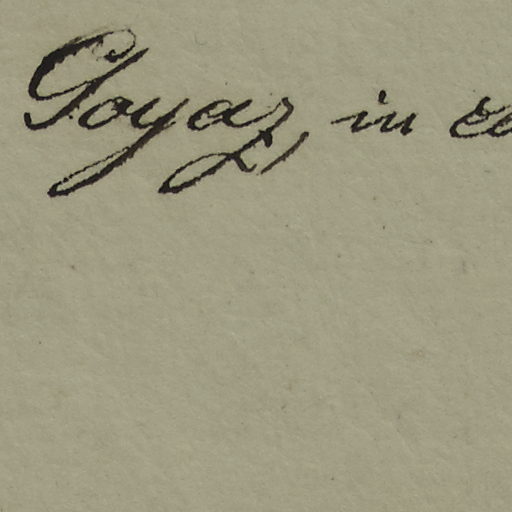 Goyaz, in